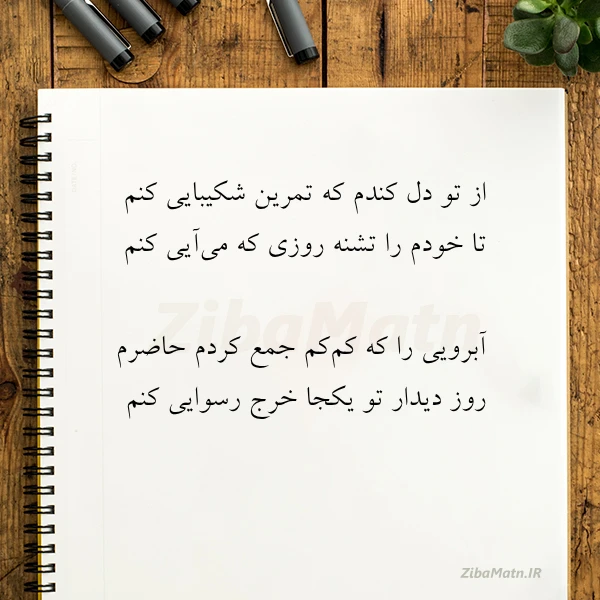 از تو دل کندم که تمرین شکیبایی کنم
تا خودم را تشنه روزی که می‌آیی کنم
آبرویی را که کم‌کم جمع کردم حاضرم
روز دیدار تو یکجا خرج رسوایی کنم
ZibaMatn
ZibaMatn.IR